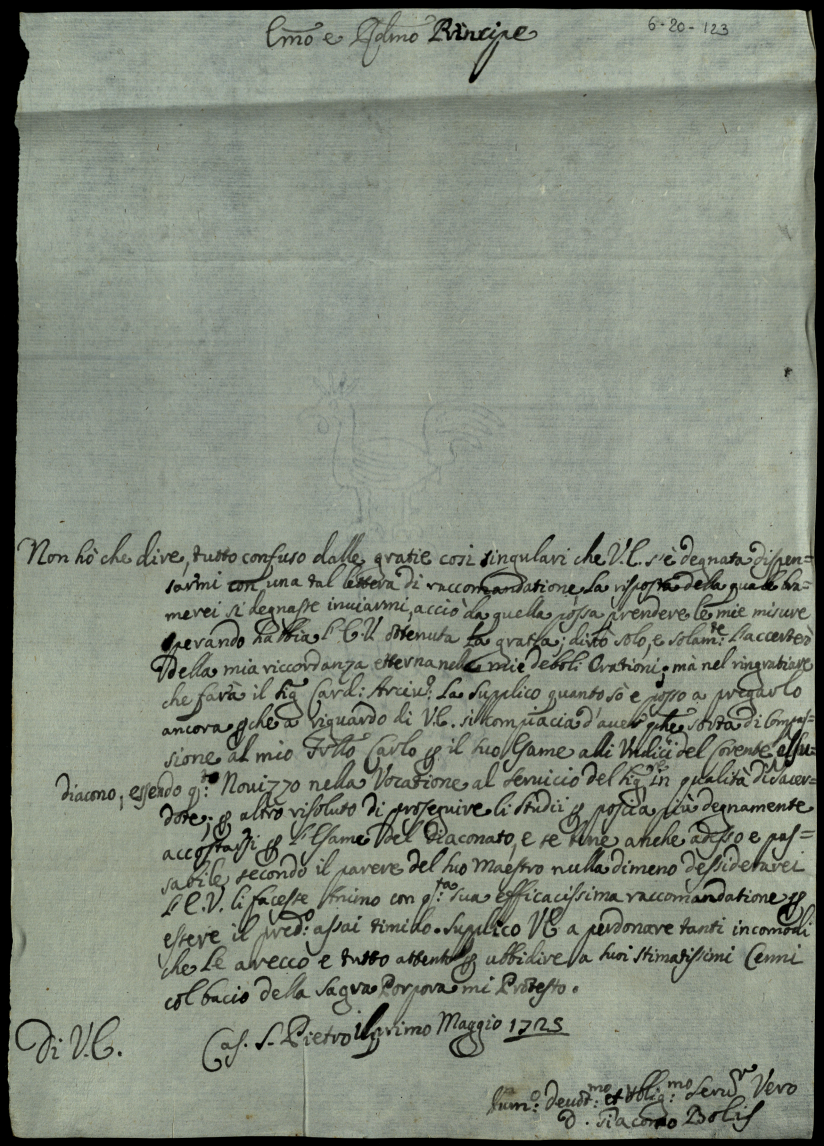 Emo e Rdmo Principe
6-20-123
Non hò che dire, tutto confuso dalle gratie così singulari che V.E. s'è degnata dispen=
sarmi con una tal lettera di raccomandatione. La risposta della quale bra=
merei si degnasse inviarmi, acciò da quella possa prendere le mie misure
sperando habbia l'E.V. ottenuta la gratia; dirò solo, e solam:te l'accerterò
della mia riccordanza etterna nelle mie deboli Orationi; mà nel ringratiare
che farà il Sig. Card: Arciv:o La supplico quanto sò e posso a pregarlo
ancora che a riguardo di V.E. si compiacia d'aver qche sorta di Compas=
sione al mio Frello Carlo il suo Esame alli Undici del Corente al Su=
diacono, essendo q:to Novizzo nella Vocatione al servicio del Sig. in qualità di Sacer=
dote, altro risoluto di proseguire li studii poscia più degnamente
accostarsi l'Esame del Diaconato, e se bene anche adesso e pas=
sabile, secondo il parere del suo Maestro nulla dimeno dessiderarei
l'E.V. li facesse Animo con q:ta sua efficacissima raccomandatione
essere il pred:o assai timido. Supplico V.E. a perdonare tanti incomodi
che Le arecco e tutto attento ubbidire a suoi stimatissimi Cenni
col bacio della Sagra Porpora mi Protesto.
Di V.E.
Cas. S. Pietro il primo Maggio 1725
Hum:o devot:mo et Oblig:mo Serv:re Vero
D. Giacomo Bolis